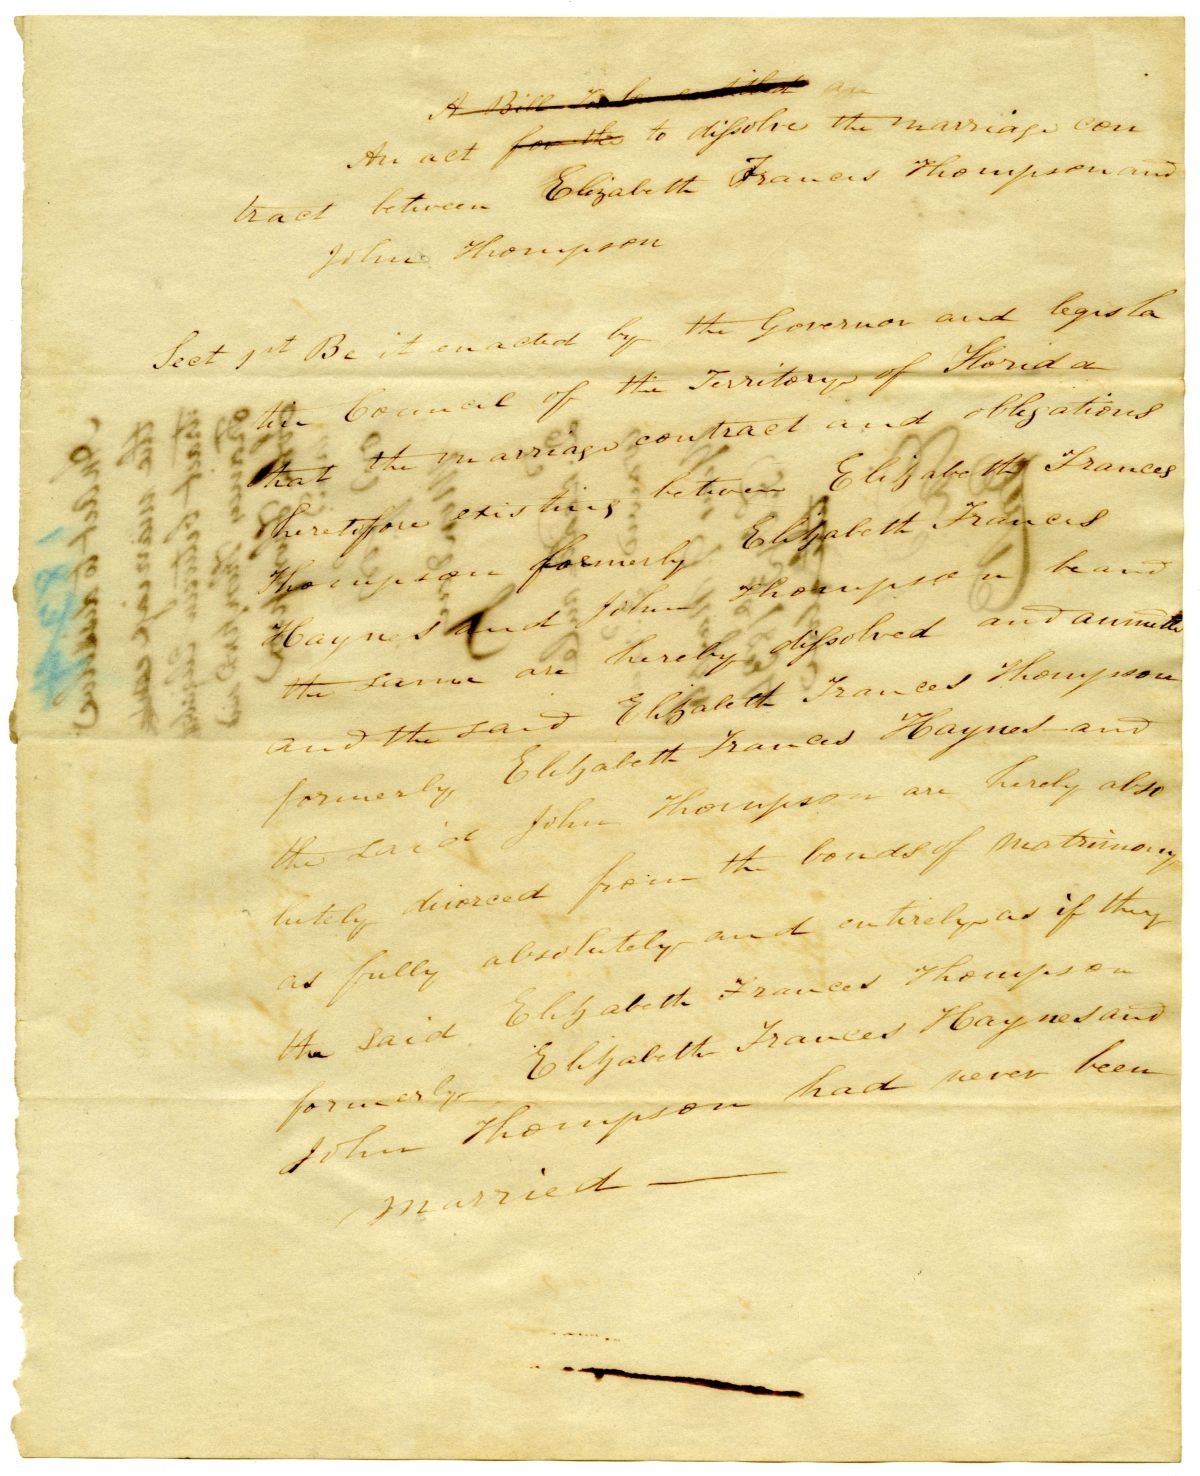 A Bill To be entitled an
An act for the to dissolve the marriage con
tract between Elizabeth Frances Thompson and
John Thompson
Sect 1st Be it enacted by the Governor and legisla
tive Council of the Territory of Florida
that the marriage contract and obligations
heretoffore existing between Elizabeth Frances
Thompson formerly Elizabeth Frances
Haynes and John Thompson be and
the same are hereby dissolved and annulled
and the said Elizabeth Frances Thompson
formerly Elizabeth Frances Haynes and
the said John Thompson are hereby abso
lutely divorced from the bonds of matrimony
as fully absolutely and entirely as if they
the said Elizabeth Frances Thompson
formerly Elizabeth Frances Haynes and
John Thompson had never been
Married